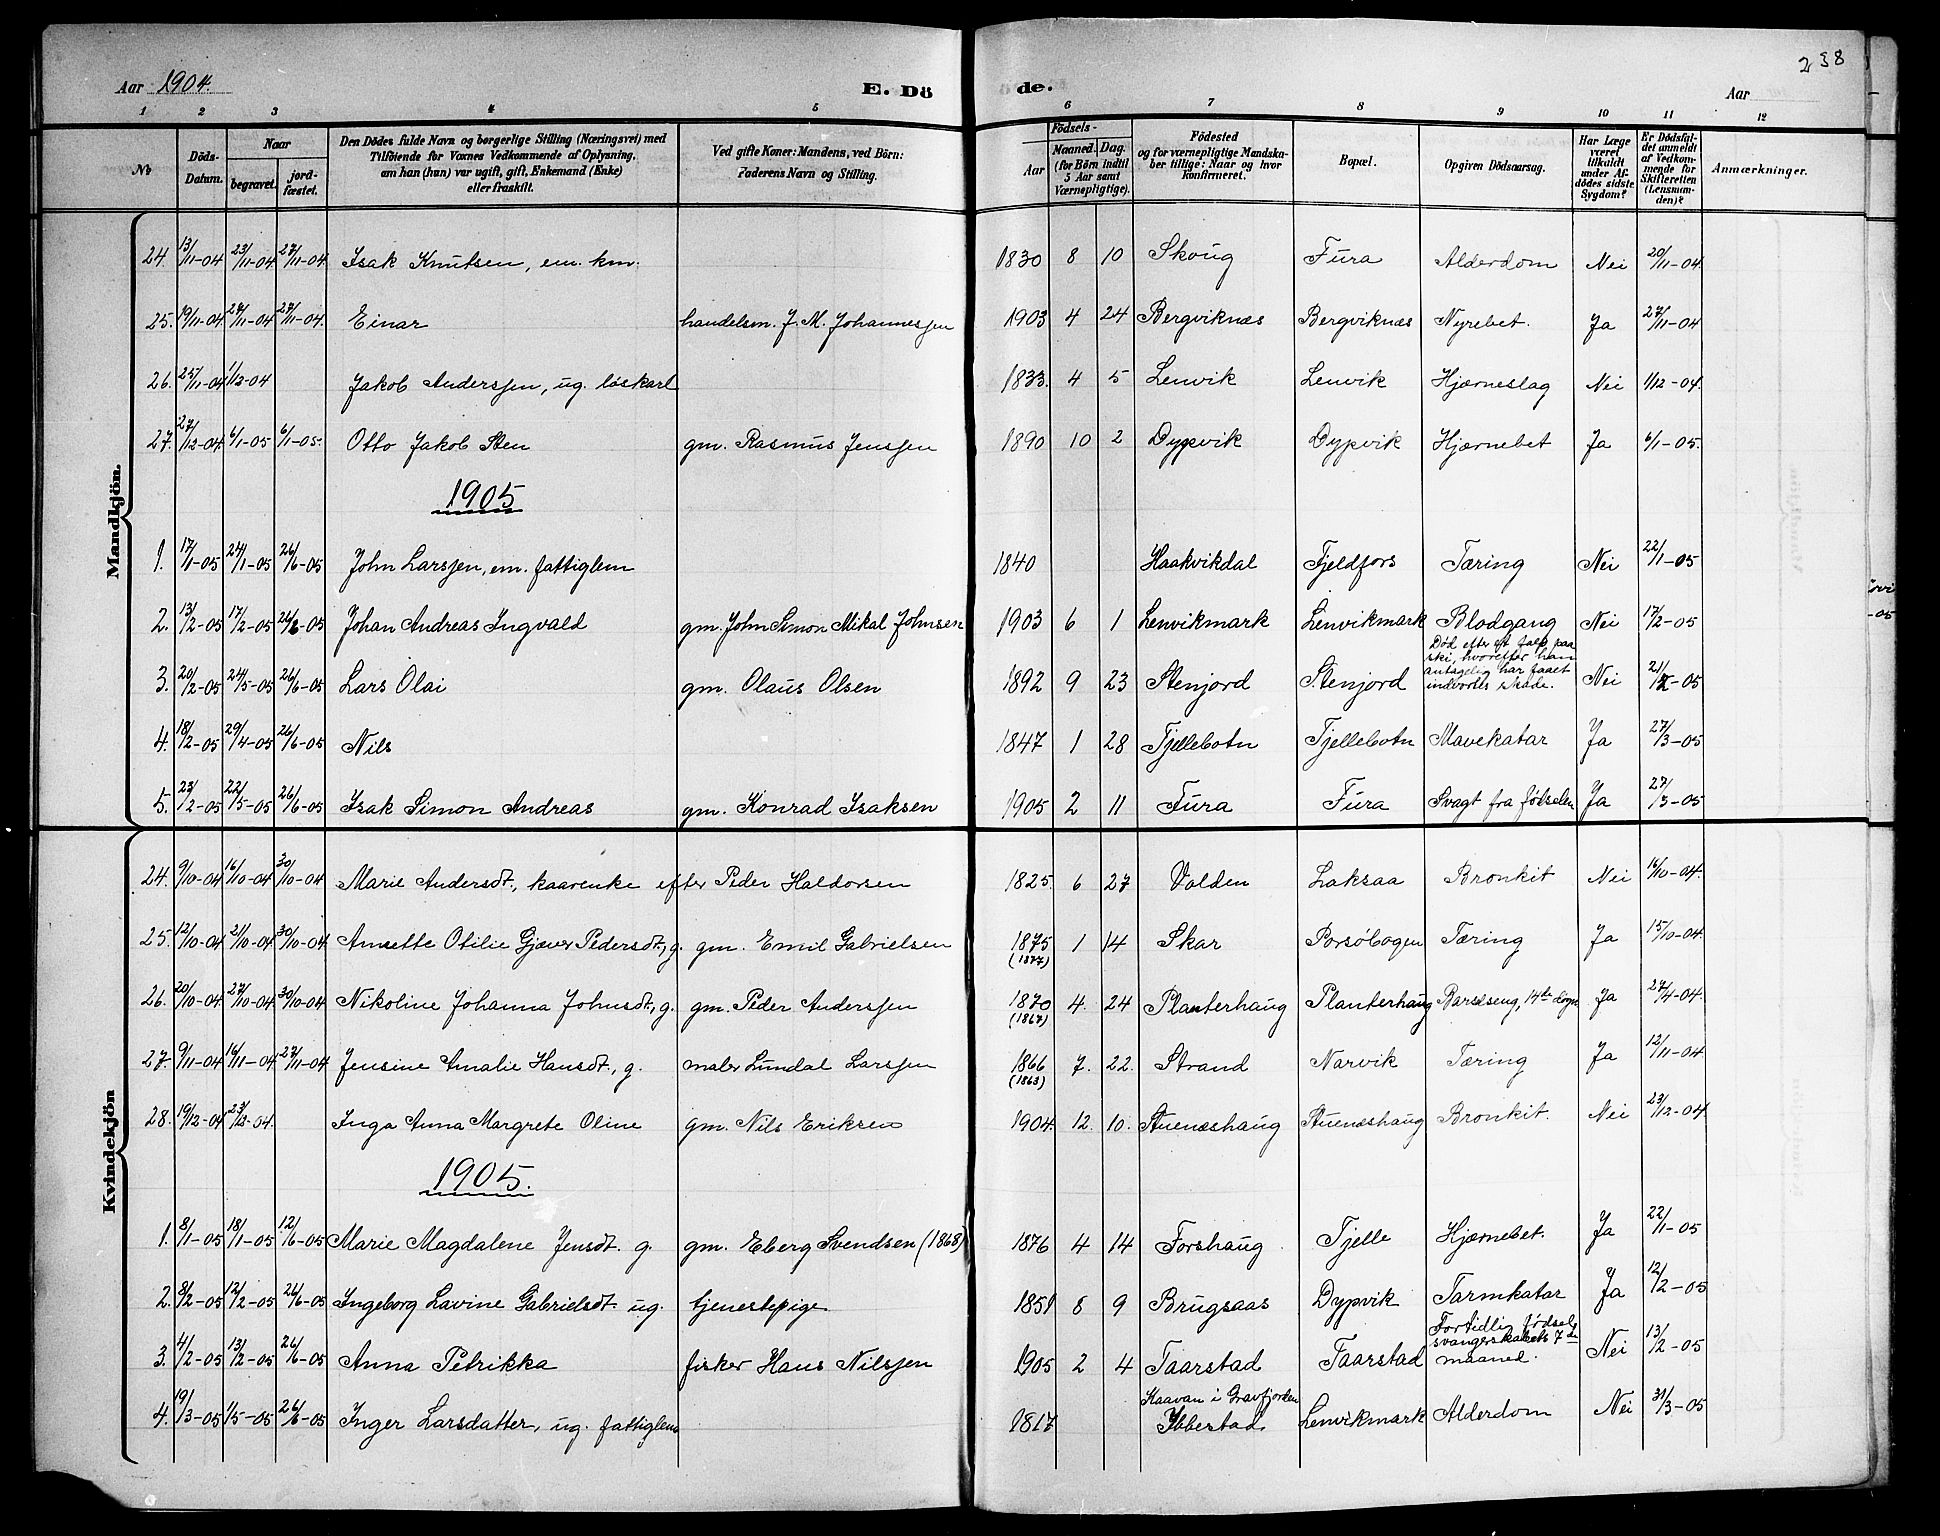 238
Aar 1904. E. Döde. Aar
1 2 3 4 5 6 7 8 9 10 11 12
№ Döds-Datum. Naar begravet. jordfæstet. Den Dödes fulde Navn og borgerlige Stilling (Næringsvei) med Tilföiende for Voxnes Vedkommende af Oplysning, om han (hun) var ugift, gift, Enkemand (Enke) eller fraskilt. Ved gifte Koner: Mandens, ved Börn: Faderens Navn og Stilling. Födsels- Aar Maaned. Dag. (for Börn indtil 5 Aar samt Værnepligtige). Födested og for værnepligtige Mandskaber tillige: Naar og hvor konfirmeret. Bopæl. Opgiven Dödsaarsag. Har Læge været tilkaldt under Afdödes sidste Sygdom? Er Dödsfaldet anmeldt af Vedkommende for Skifteretten (Lensmanden)? Anmærkninger.
Mandkjön.
24. 13/11-04 23/11-04 27/11-04 Isak Knutsen, em. km. 1830 8 10 Skoug Fura Alderdom Nei 20/11-04.
25. 19/11-04 27/11-04 27/11-04. Einar handelsm. J. M. Johannessen 1903 4 24 Bergviknæs Bergviknæs Nyrebet. Ja 27/11-04
26. 25/11-04 1/12-04 Jakob Anderssen, ug. løskarl 1833. 4 5 Lenvik Lenvik Hjærneslag Nei 1/12-04.
27. 27/12-04. 6/1-05 6/1-05- Otto Jakob Sten gm. Rasmus Jenssen 1890 10 2 Dypvik Dypvik Hjærnebet Ja 6/1-05.
1905
1. 17/1-05 24/1-05 26/6-05 John Larssen, em. fattiglem 1840 Haakvikdal Fjeldfors Tæring Nei 22/1-05
2. 13/2-05 17/2-05 26/6-05 Johan Andreas Ingvald gm. John Simon Mikal Johnsen 1903 6 1 Lenvikmark Lenvikmark Blodgang Nei 17/2-05
3. 20/2-05 24/5-05 26/6-05 Lars Olai gm. Olaus Olsen 1892 9 23 Stenjord Stenjord Død efter et fald paa ski, hvorefter han antagelig har faaet indvortes skade. Nei 21/2-05
4. 18/2-05 29/4-05 26/6-05 Nils 1847 1 28 Tjellebotn Tjellebotn Mavekatar Ja 27/3-05
5. 23/2-05 22/5-05 26/6-05 Isak Simon Andreas gm. Konrad Isaksen 1905 2 11 Fura Fura Svagt fra fødselen Ja 27/3-05
Kvindekjön
24. 9/10-04 16/10-04 30/10-04 Marie Andersdt., kaarenke efter Peder Haldorsen 1825. 6 27 Volden Laksaa Bronkit Nei 16/10-04.
25. 12/10-04 21/10-04 30/10-04 Ansette Otilie Gjæver Pedersdt., g. gm. Emil Gabrielsen 1875 (1877) 1 14 Skar Porsøbogen Tæring Ja 15/10-04.
26. 20/10-04 27/10-04 30/10-04 Nikoline Johanna Johnsdt., g. gm. Peder Anderssen 1870 (1867) 4. 24 Planterhaug Planterhaug Barselseng, 14de døgn Ja 27/4-04.
27. 9/11-04 16/11-04 27/11-04 Jensine Amalie Hansdt., g. maler Lundal Larssen 1866 (1863) 7. 22. Strand Narvik Tæring Ja 12/11-04
28. 19/12-04 23/12-04. Inga Anna Margrete Oline gm. Nils Eriksen 1904. 12. 10. Stuenæshaug Stuenæshaug Bronkit. Nei 23/12-04
1905.
1. 8/1-05 18/1-05 12/6-05 Marie Magdalene Jensdt. g. gm. Eberg Svendsen (1868) 1876 4 14 Forshaug Tjelle Hjærnebet. Ja 22/11-05
2. 8/2-05 12/2-05 26/6-05 Ingeborg Lavine Gabrielsdt. ug. tjenestepige 1851 8 9 Brugsaas Dypvik Tarmkatar Ja 12/2-05
3. 4/2-05 13/2-05 26/6-05 Anna Petrikka fisker Hans Nilssen 1905 2 4 Taarstad Taarstad For tidlig fødsel svangerskabets 7de maaned. Nei 13/2-05
4. 19/3-05 1/5-05 26/6-05 Inger Larsdatter, ug. fattiglem 1817 Kaavan i Gravfjorden Ibbestad. Lenvikmark Alderdom Nei 31/3-05